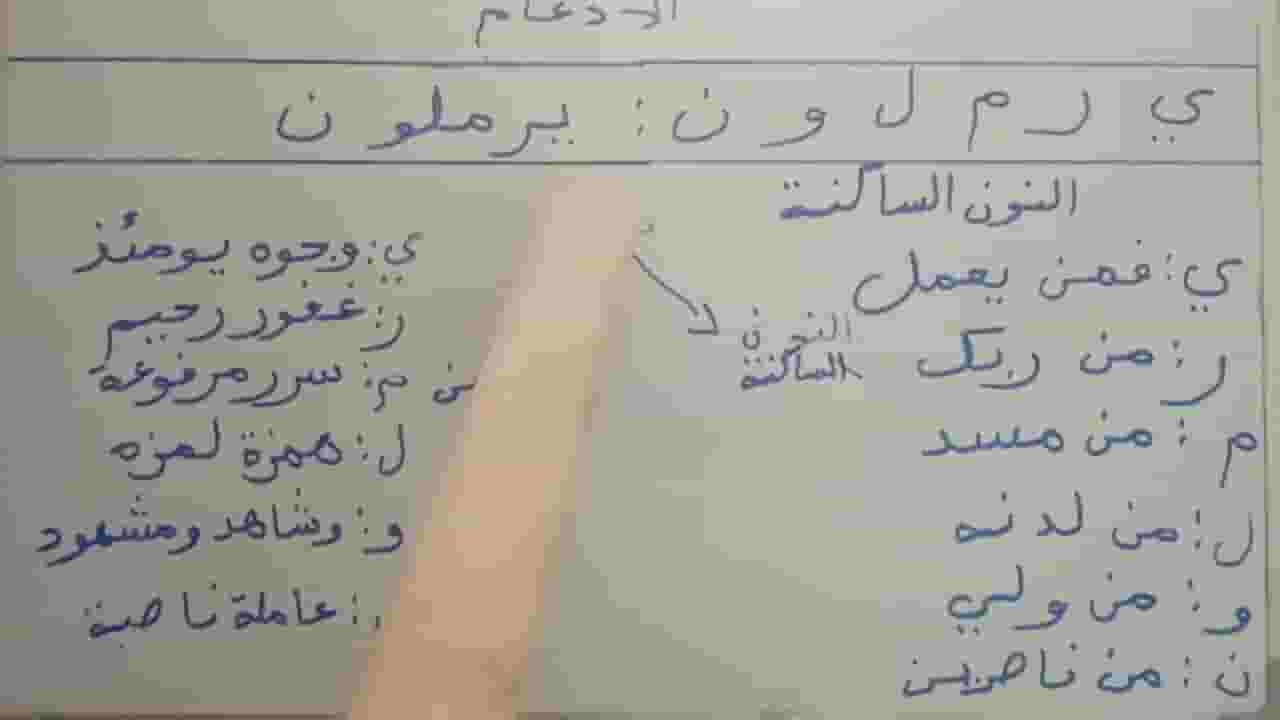 الإدغام
ي ر م ل و ن : يرملون
النون الساكنة
ي : فمن يعمل
ر : من ربك
م : من مسد
ل : من لدنه
و : من ولي
ن : من ناصرين
النون
الساكنة
ي : وجوه يومئذ
ر : غفور رحيم
م : سرر مرفوعة
ل : همزة لمزه
و : وشاهد ومشهود
: عاملة ناصبة